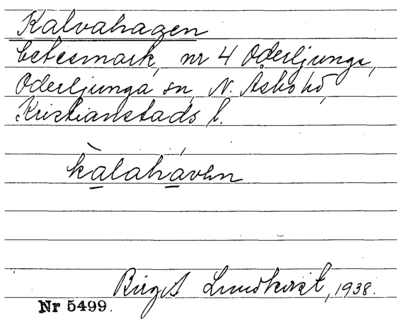 Kalvahagen
betesmark, nr 4 Oderljunga,
Oderljunga sn, N. Åsbo hd,
Kristianstads l.
kàlahávен
Birgit Lundkvist, 1938.
Nr 5499.